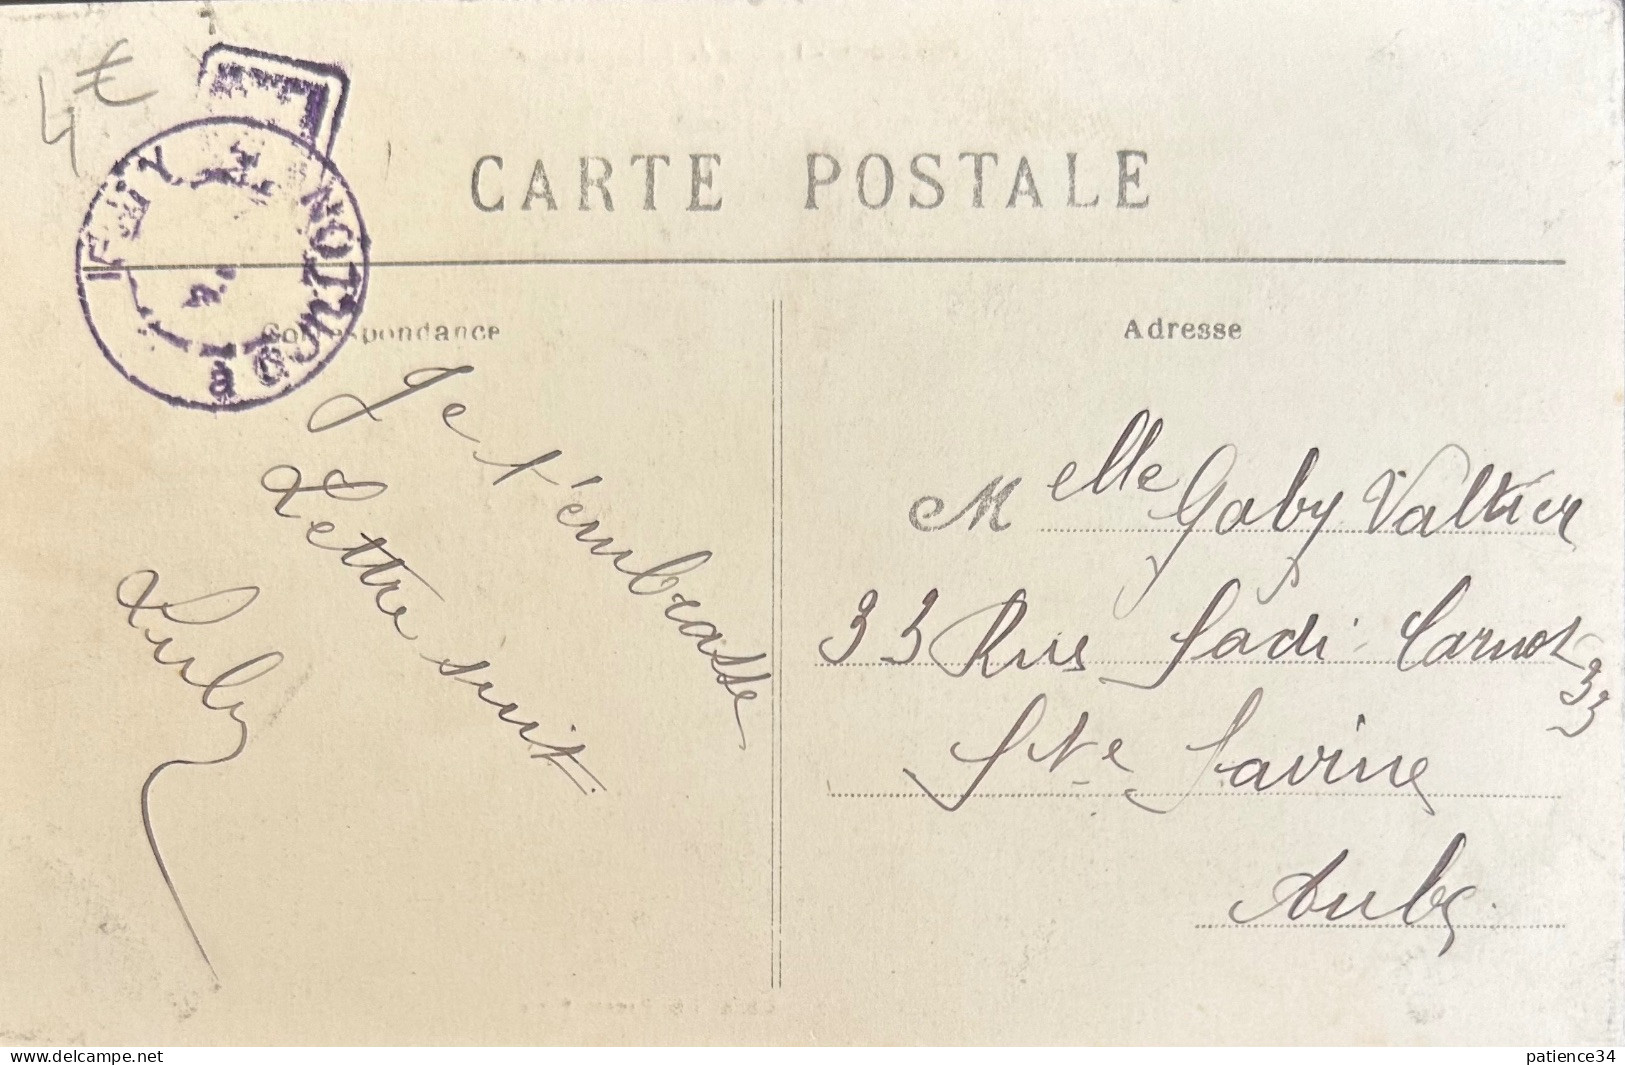 4€
CARTE POSTALE
Correspondance
Adresse
Je t'embrasse
Lettre suit.
Luly
Melle Gaby Valtier
33 Rue Sadi Carnot 33
Ste Savine
Aube.
www.delcampe.net
patience34